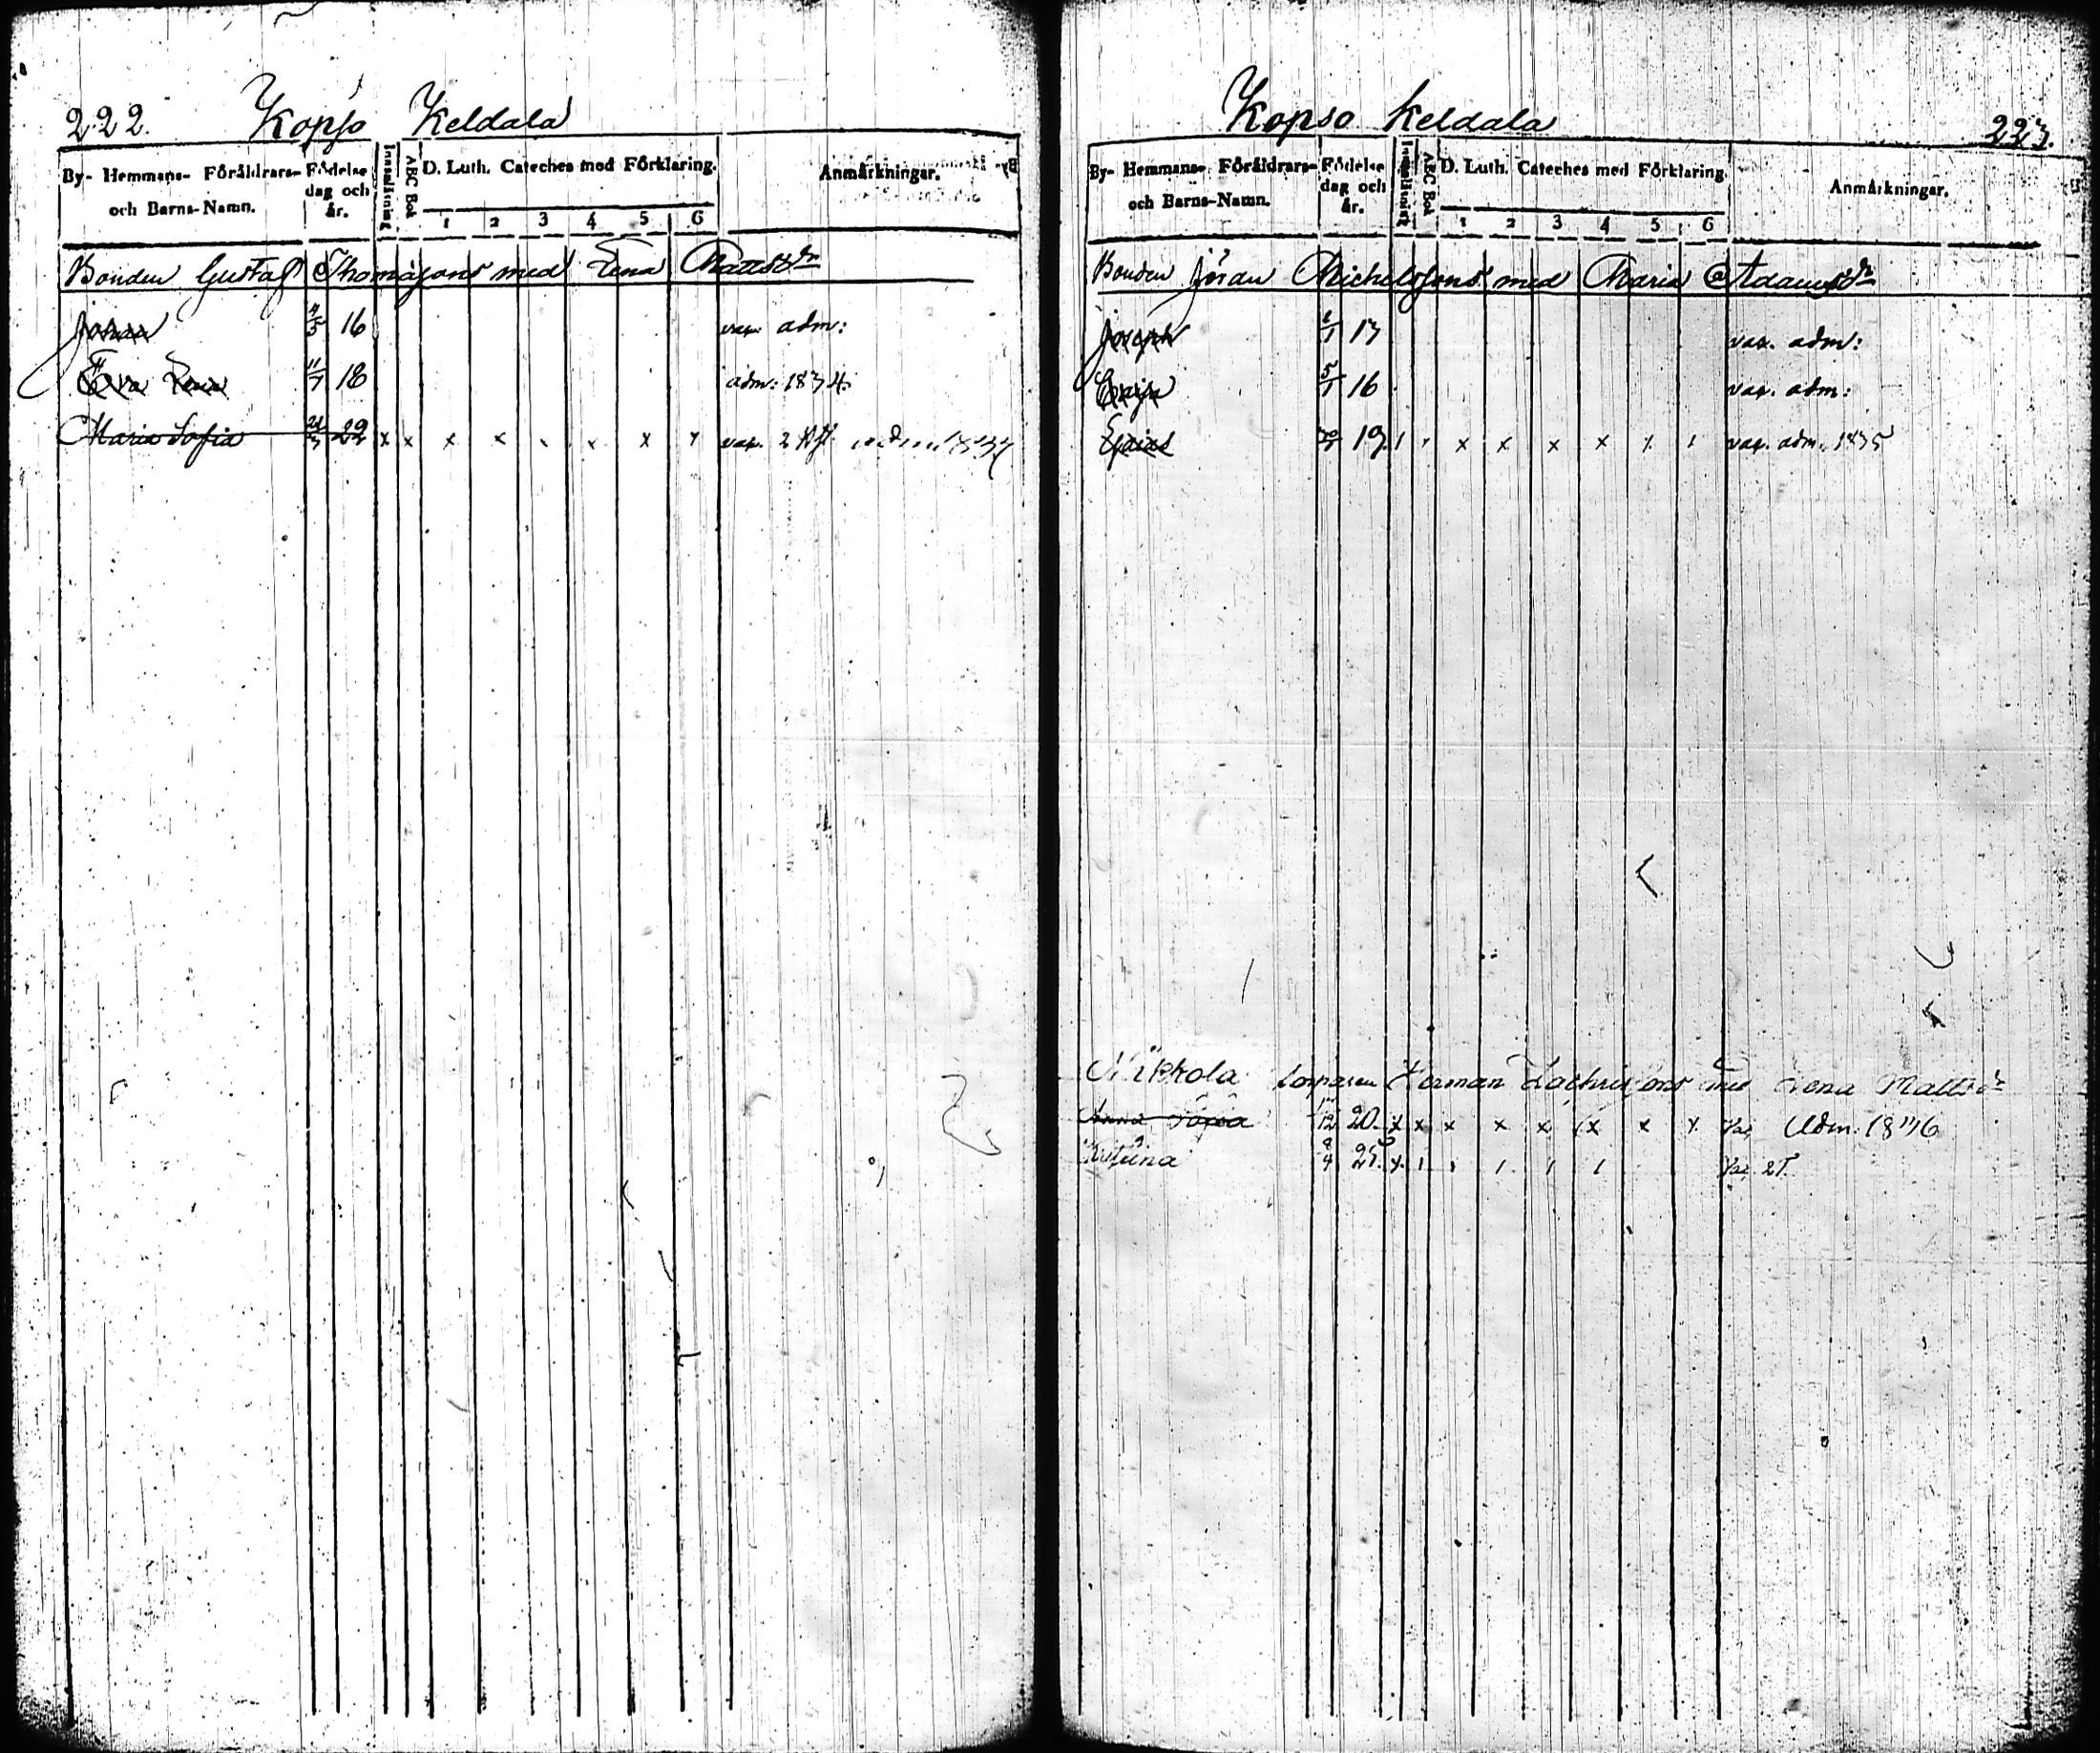 222. Kopso Keldala
By- Hemmans- Föräldrars- och Barns-Namn. Födelse dag och år. Innanläsning ABC Bok D. Luth. Cateches med Förklaring. Anmärkningar.
1 2 3 4 5 6
Bonden Gustaf Thomasons med Lena Mattsdr
Johan 4/5 16 vax. adm:
Eva Lena 11/7 18 adm: 1834
Maria Sofia 22 x x x x x x x vax.
Kopso Keldala 223.
By- Hemmans- Föräldrars- och Barns-Namn. Födelse dag och år. Innanläsning ABC Bok D. Luth. Cateches med Förklaring. Anmärkningar.
1 2 3 4 5 6
Bonden Jöran Michelssons med Maria Adamsdr
Joseph 13 vax. adm:
Caisa 5/1 16 vax. adm:
19 x x x x vax. adm. 1835
Mikkola torparen Herman Zachrissons med Lena Mattsdr
Anna Sofia 12 20. x x x x x x x x Vac Adm. 1836
Kristina 8/4 25. x Vac